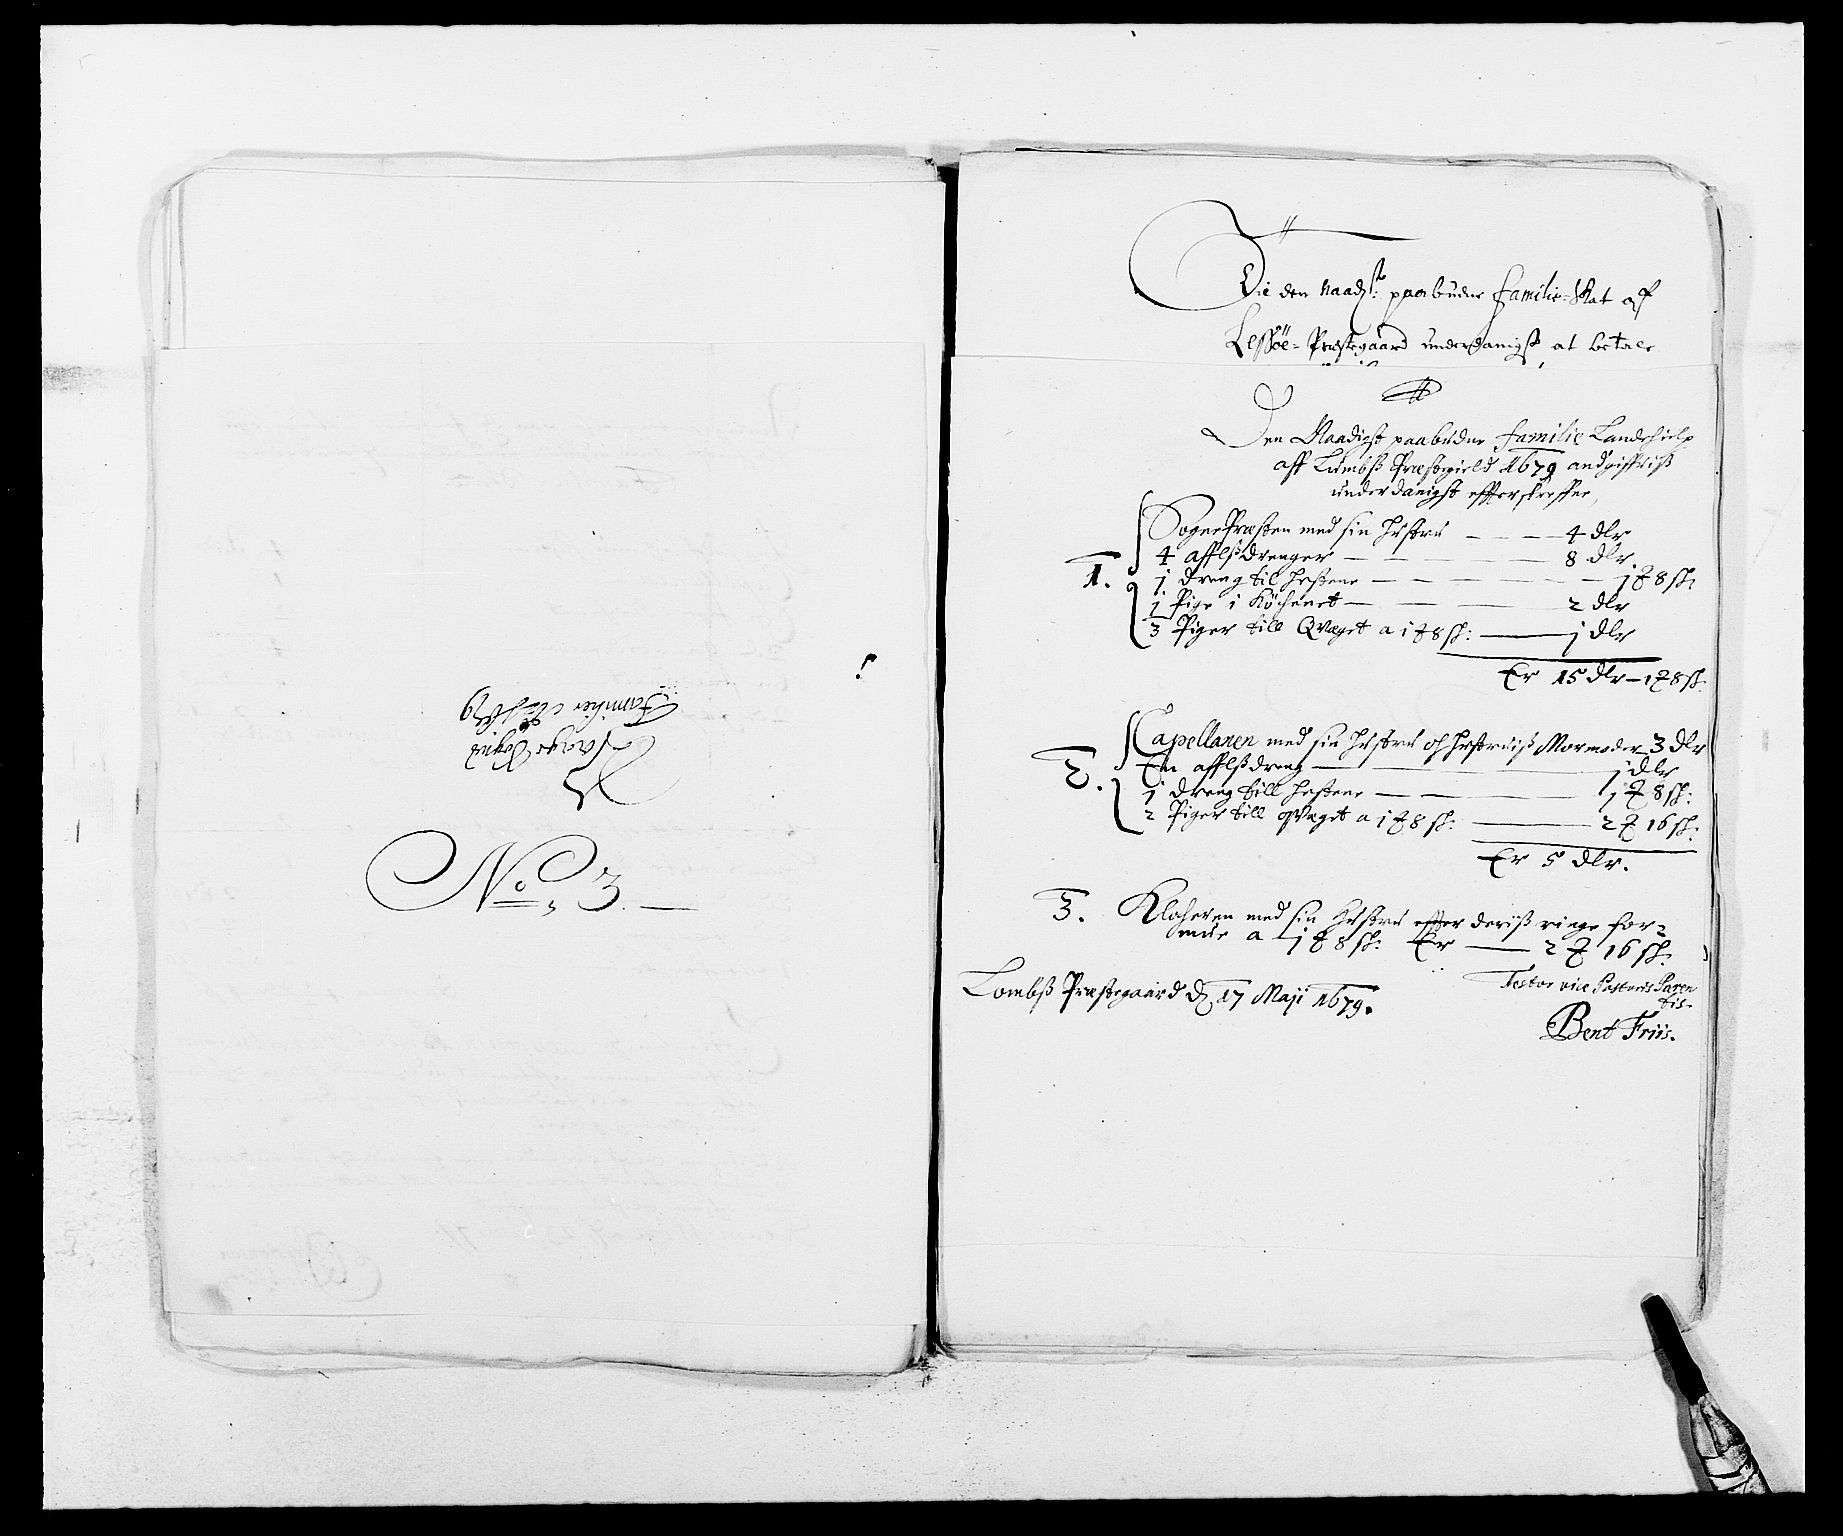 No. 3.
Die den Naadst: paabudne familie-Skat af
Lessöe-Præstegaard underdanigst at betale
Den Naadigst paabudne familie Landehielp
aff Lumbß Præstegield 1679 andgiffuiß
underdanigst effterskreffne,
1. SognePræsten med sin Hustru — 4 dlr
4 afflßdrenger — 8 dlr.
1 dreng til hestene — 1 ℥ 8 sk:
1 Pige i Köchenet — 2 dlr
3 Piger till Qvæget a 1 ℥ 8 sk: — 1 dlr
Er 15 dlr — 1 ℥ 8 sk:
2. Capellanen med sin Hustru og Hustruiß Mormoder 3 dlr
En afflßdreng — 1 dlr
1 dreng till hestene — 1 ℥ 8 sk:
2 Piger till qvæget a 1 ℥ 8 sk: — 2 ℥ 16 sk:
Er 5 dlr.
3. Klocheren med sin Hustru effter deriß ringe for-
mue a 1 ℥ 8 sk: Er — 2 ℥ 16 sk:
Lombß Præstegaard d. 17 Maji 1679.
Testor vice Pastoris Paren
tis.
Bent Friis.